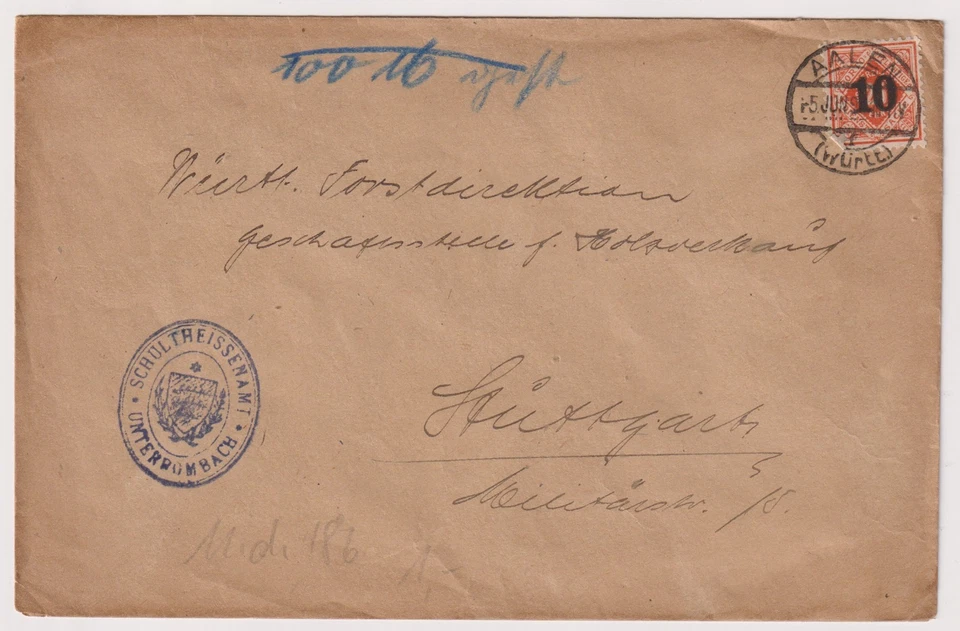 100 M
AALEN
-5 JUN
10
(Württ.)
Württ. Forstdirektion
Geschäftsstelle f. Holzverkauf
SCHULTHEISSENAMT
UNTERROMBACH
Stuttgart
Militärstr. 15.
186